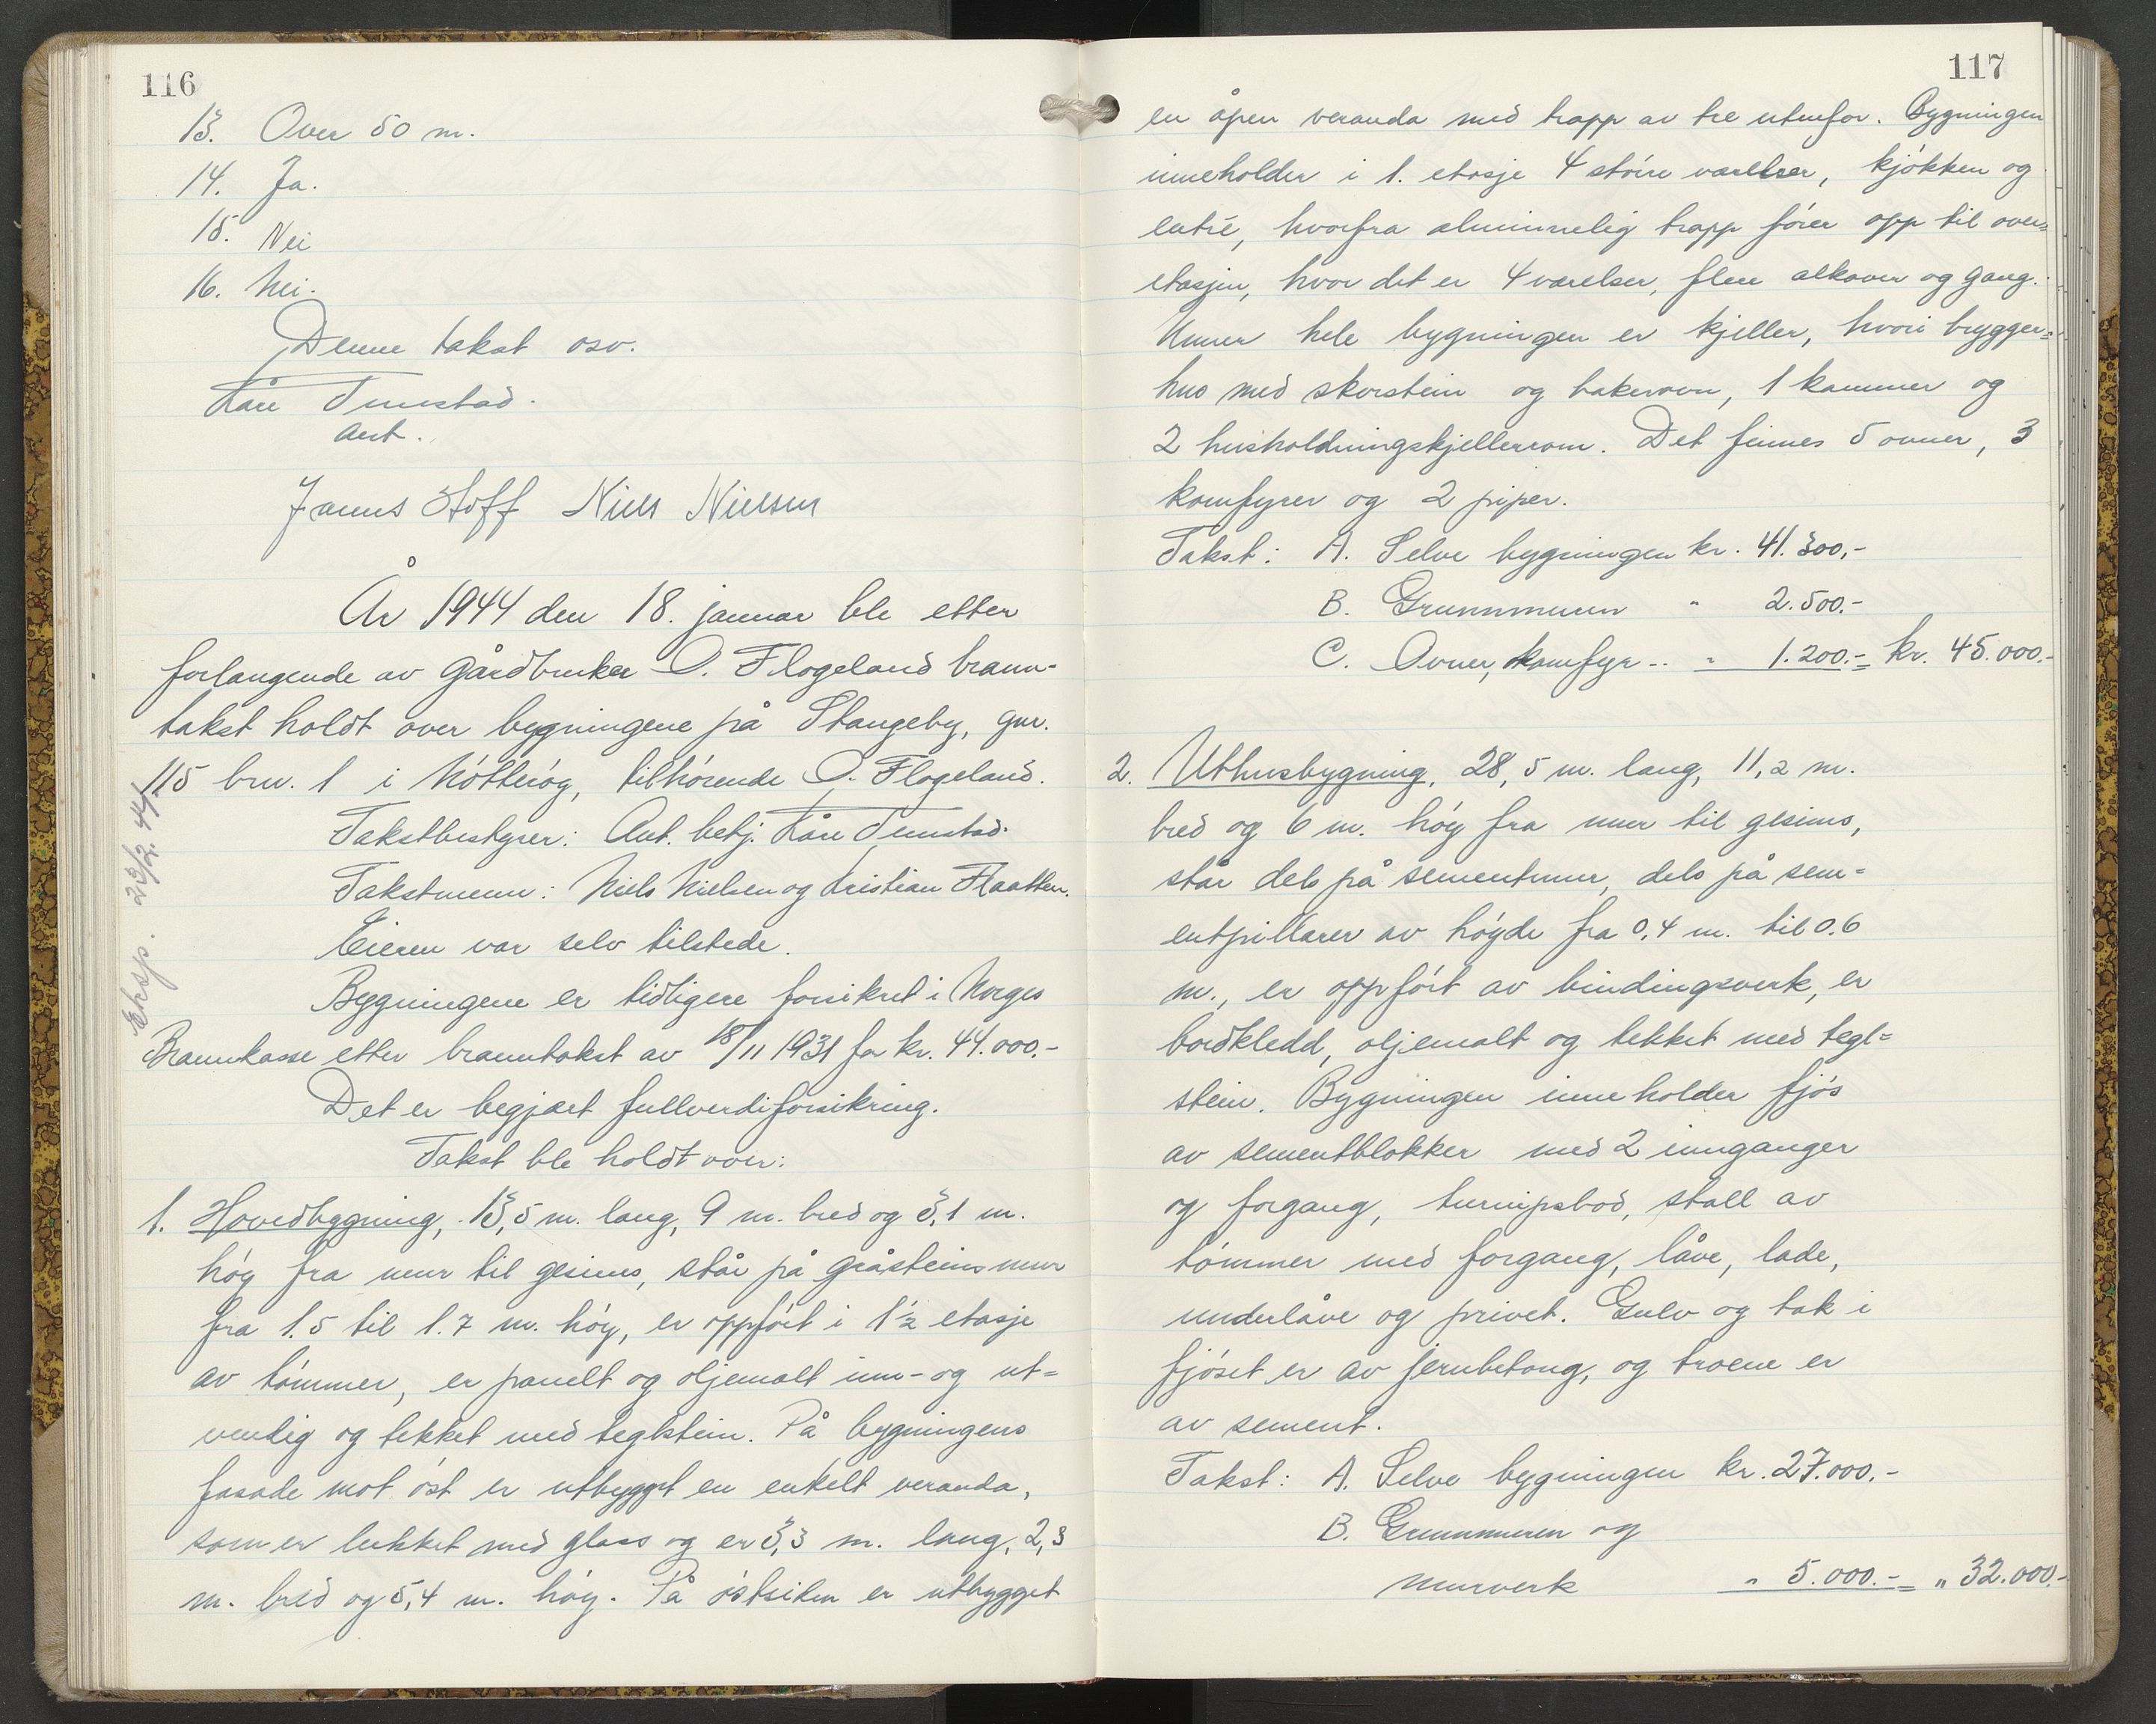 116
13. Over 50 m.
14. Ja.
15. Nei
16. Nei.
Denne takst osv.
Kåre Tunstad.
aut.
Janus Hoff Niels Nielsen
År 1944 den 18. januar ble etter
forlangende av gårdbruker O. Flogeland brann-
takst holdt over bygningene på Stangeby, gnr.
115 brn. 1 i Nótteróg, tilhórende O. Flogeland.
Takstbestyrer: Aut. betj. Kåre Tunstad.
Takstmenn: Niels Nielsen og Kristian Flaatten.
Eieren var selv tilstede.
Bygningene er tidligere forsikret i Norges
Brannkasse etter branntakst av 18/11 1931 for kr. 44.000.-
Det er begjært fullverdiforsikring.
Takst ble holdt over:
1. Hovedbygning, 13,5 m. lang, 9 m. bred og 3,1 m.
hóg fra mur til gesims, står på gråsteinsmur
fra 1.5 til 1.7 m. hóy, er oppfórt i 1½ etasje
av tómmer, er panelt og oljemalt inn- og ut=
vendig og tekket med teglstein. På bygningens
fasade mot óst er utbygget en enkelt veranda,
som er lukket med glass og er 3,3 m. lang, 2,3
m. bred og 5,4 m. hóy. På óstsiden er utbygget
Eksp. 23/2.44.
117
en åpen veranda med trapp av tre utenfor. Bygningen
inneholder i 1. etasje 4 stórre værelser, kjókken og
entré, hvorfra alminnelig trapp fórer opp til over=
etasjen, hvor det er 4 værelser, flere alkover og gang.
Unner hele bygningen er kjeller, hvori brygger=
hus med skorstein og bakerovn, 1 kammer og
2 husholdningskjellerrom. Det finnes 5 ovner, 3
komfyrer og 2 piper.
Takst: A. Selve bygningen kr. 41.300,-
B. Grunnmuren " 2.500.-
C. Ovner, komfyr .. " 1.200.- = kr. 45.000.-
2. Uthusbygning, 28,5 m. lang, 11,2 m.
bred og 6 m. hóy fra mur til gesims,
står dels på sementmur, dels på sem=
entpillarer av hóyde fra 0,4 m. til 0.6
m., er oppfórt av bindingsverk, er
bordkledd, oljemalt og tekket med tegl=
stein. Bygningen inneholder fjós
av sementblokker med 2 innganger
og forgang, turnipsbod, stall av
tómmer med forgang, låve, lade,
underlåve og privet. Gulv og tak i
fjóset er av jernbetong, og troene er
av sement.
Takst: A. Selve bygningen kr. 27.000.-
B. Grunnmuren og
murverk " 5.000.- = " 32.000.-